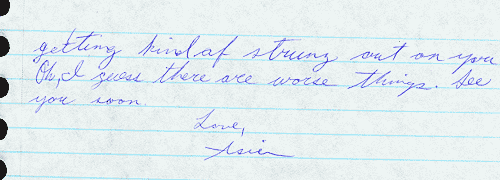 getting kind of strung out on you
Oh, I guess there are worse things. See
you soon.
Love,